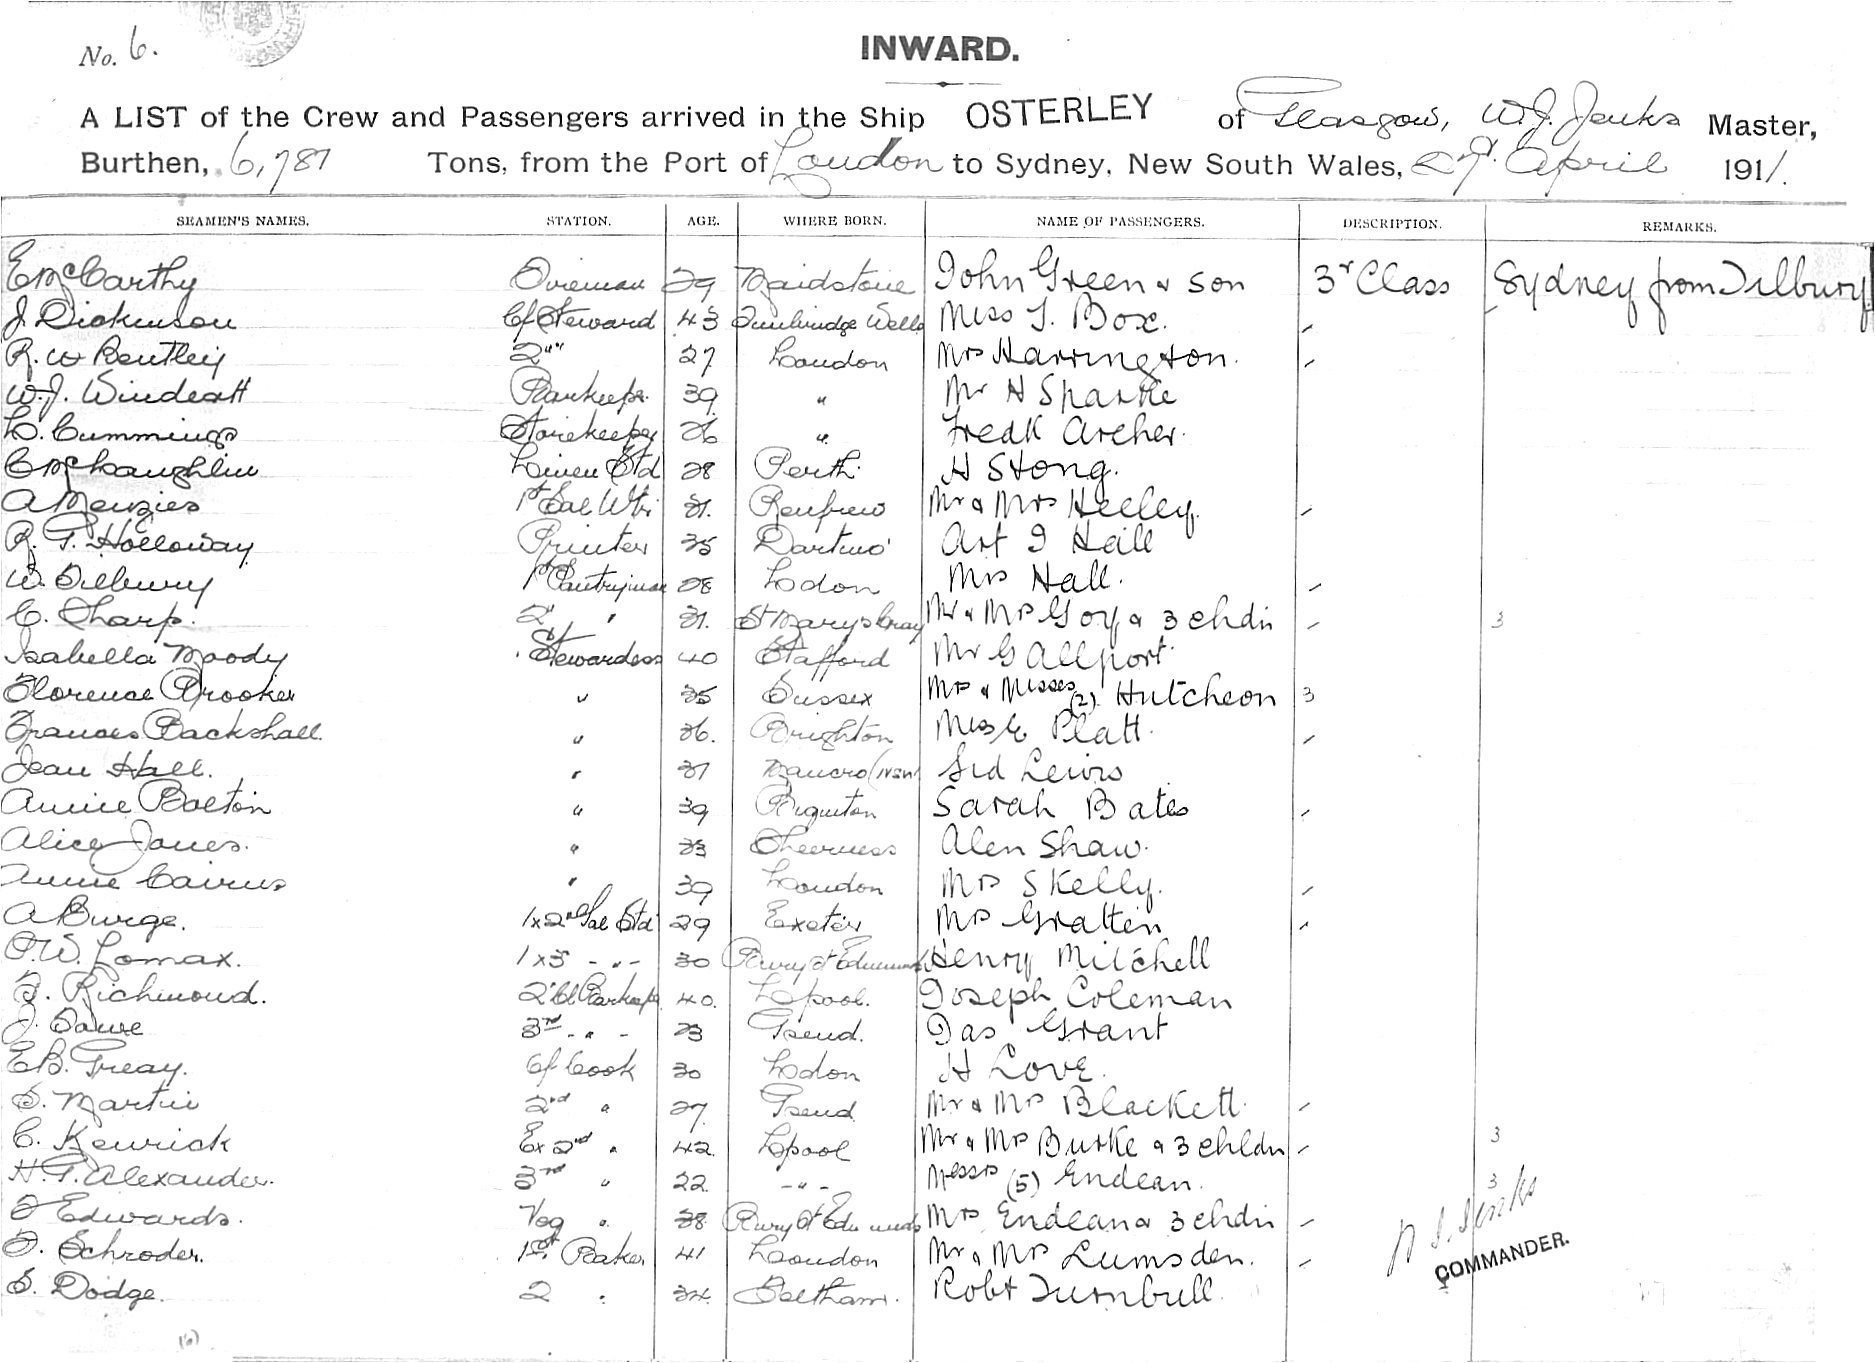 No. 6.
INWARD.
A LIST of the Crew and Passengers arrived in the Ship OSTERLEY of Glasgow, W.J. Jenks Master,
Burthen, 6,787 Tons, from the Port of London to Sydney, New South Wales, April 1911.
SEAMEN'S NAMES. STATION. AGE. WHERE BORN. NAME OF PASSENGERS. DESCRIPTION. REMARKS.
E McCarthy 29 Maidstone John Green & Son 3r Class Sydney from Tilbury
J. Dickinson Cf Steward 43 Tunbridge Wells Miss T. Box.
R. W Bentley 2" " 27 London Mrs Harrington.
W.J. Windeatt Barkeepr 39 " Mr H Sparke
L. Cummings Storekeeper 26 " Fredk Archer.
C McLaughlin Linen Std 28 Perth H Stong.
A Menzies 1st Sal Wtr 31. Renfrew Mr & Mrs Heeley
R. G. Holloway Printer 35 Art J Hall
W. Dilbury 1st Pantryman 28 Lodon Mrs Hall.
C. Sharp. 2" " 31. St Marys Cray Mr & Mrs Goy & 3 chdn 3
Isabella Moody Stewardess 40 Stafford Mr G Allport
Florence Brooker " 35 Sussex Mrs & Misses (2) Hutcheon 3
Frances Backshall " 36. Brighton Miss E Platt.
Jean Hall. " 37 (NSW) Sid Lewis
Annie Bolton " 39 Sarah Bates
Alice Jones. " 33 Sheerness Alen Shaw.
Annie Cairns " 39 London Mrs Skelly.
A Burge. 1x2nd Sal Std 29 Exeter Mrs Grattin
P.W. Lomax. 1x3 - " - 30 Bury St Edmunds Henry Mitchell
F. Richmond. 2 Cl Barkeepr 40. Lpool. Joseph Coleman
J. Sawe 3rd - " - 23 Gsend. Jas Grant
E.B. Greay. Cf Cook 30 Lodon H Love.
S. Martin 2nd " 27. Gsend Mr & Mrs Blackett
C. Kenrick Ex 2nd " 42. Lpool Mr & Mrs Burke & 3 chldn 3
H. G. Alexander. 3rd " 22. - " - Messrs (5) Endean. 3
F Edwards. Veg " 38 Bury St Edmunds Mrs Endean & 3 chdn
F. Schroder. 1st Baker 41 London Mr & Mrs Lumsden.
S. Dodge. 2 " 34. Feltham. Robt Turnbull
Jenks
COMMANDER.